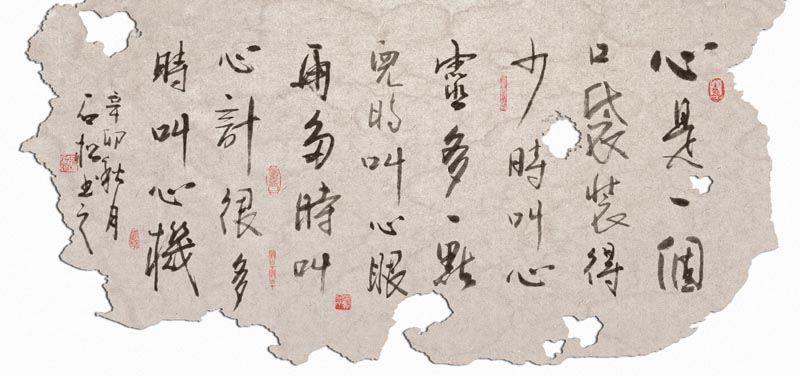 心是一個
口袋裝得
少時叫心
靈多一點
兒時叫心眼
再多時叫
心計很多
時叫心機
辛卯秋月
石松書之